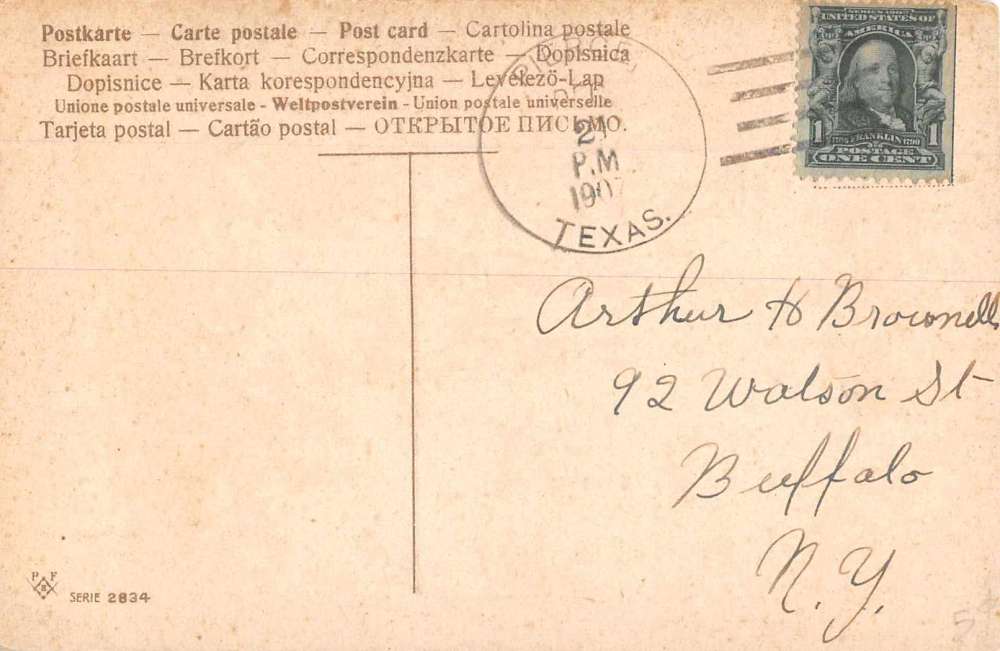 Postkarte — Carte postale — Post card — Cartolina postale
Briefkaart — Brefkort — Correspondenzkarte — Dopisnica
Dopisnice — Karta korespondencyjna — Levelező-Lap
Unione postale universale - Weltpostverein - Union postale universelle
Tarjeta postal — Cartão postal — ОТКРЫТОЕ ПИСЬМО.
21
P.M
1907
TEXAS.
SERIES 1902
UNITED STATES OF
AMERICA
1 FRANKLIN 1
POSTAGE
ONE CENT
Arthur H Brownell
92 Watson St
Buffalo
N.Y.
P F
B
SERIE 2834